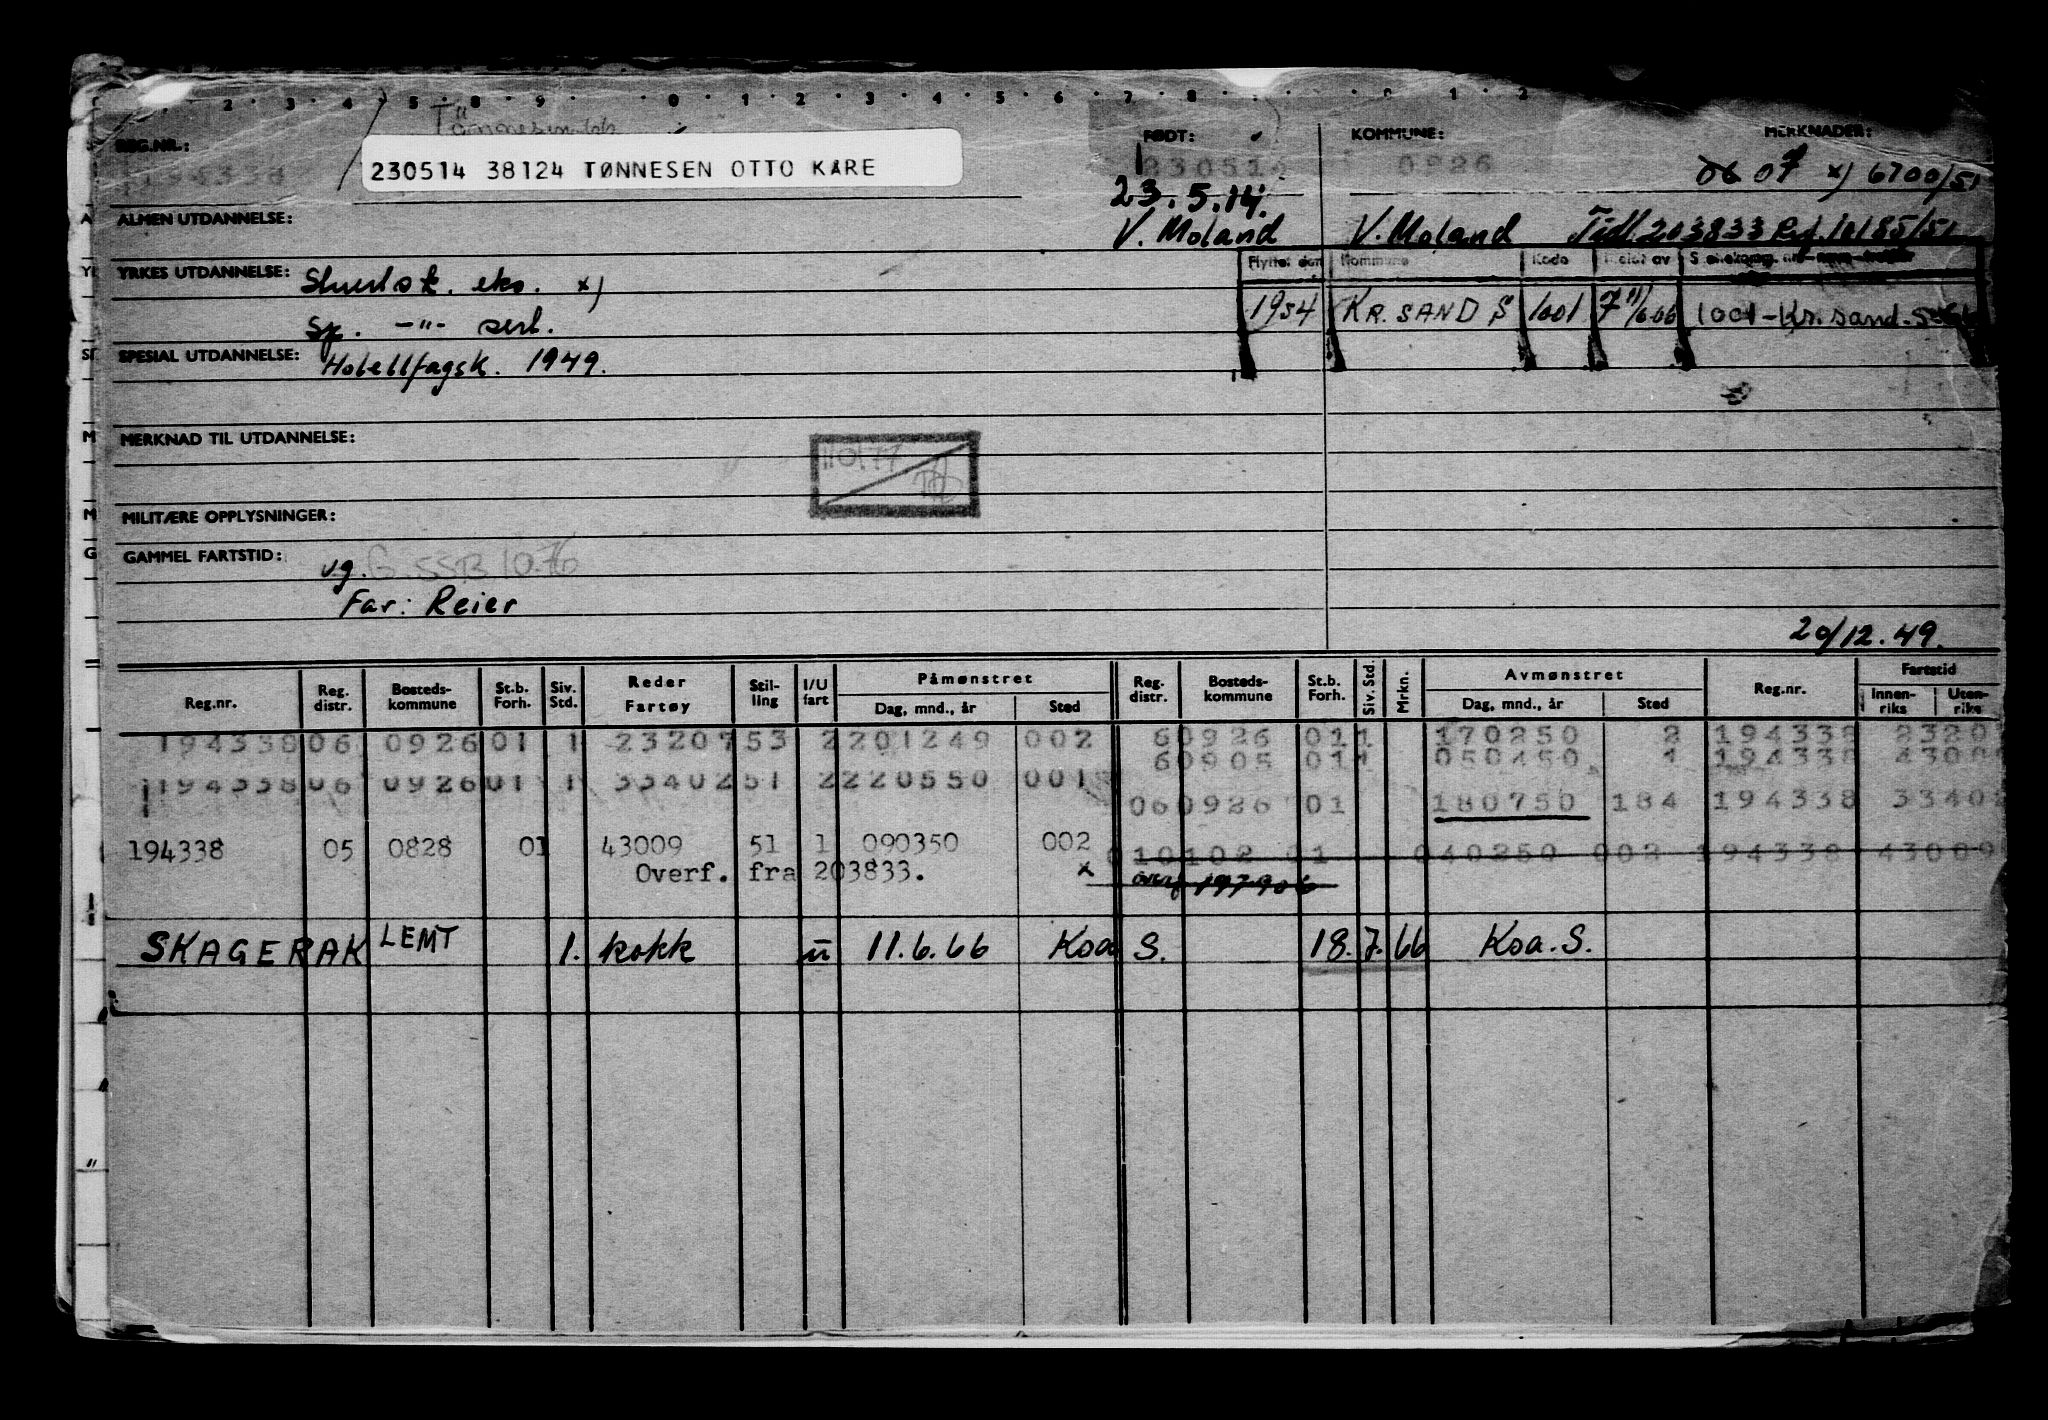 2 3 4 5 8 9 0 1 2 3 4 5 6 7 8 0 1 2
REG.NR.: FØDT: KOMMUNE: MERKNADER:
194338 230514 0926
230514 38124 TØNNESEN OTTO KÅRE
23.5.14. 06 07 x) 6700/51
V. Moland V. Moland Tidl. 203833 Ref. 10185/51
ALMEN UTDANNELSE:
Kommune Kode
YRKES UTDANNELSE: eks. x)
1954 KR. SAND S 1001 1001-Kr.sand.
Sp. -"- sert.
SPESIAL UTDANNELSE: Hotellfagsk. 1949.
MERKNAD TIL UTDANNELSE:
110177
MILITÆRE OPPLYSNINGER:
GAMMEL FARTSTID: vg. G. SSB 10.76
Far: Reier
20/12.49.
Reg.nr. Reg. distr. Bosteds-kommune St.b. Forh. Siv. Std. Reder Fartøy Stil-ling I/U fart Påmønstret Dag, mnd., år Sted Reg. distr. Bosteds-kommune St.b. Forh. Siv. Std. Mrkn. Avmønstret Dag, mnd., år Sted Reg.nr. Fartstid Innen-riks Uten-riks
194338 06 0926 01 1 23207 53 2 201249 002 6 0926 01 1 170250 2 194338 2320
6 0905 01 1 050450 1 194338 4300
194338 06 0926 01 1 33402 51 2 220550 001
06 0926 01 180750 184 194338 33402
194338 05 0828 01 43009 51 1 090350 002 010102 01 040250 002 194338 43009
Overf. fra 203833. x overf 197906
SKAGERAK LEMT 1. kokk u 11.6.66 Koa S. 18.7.66 Koa. S.